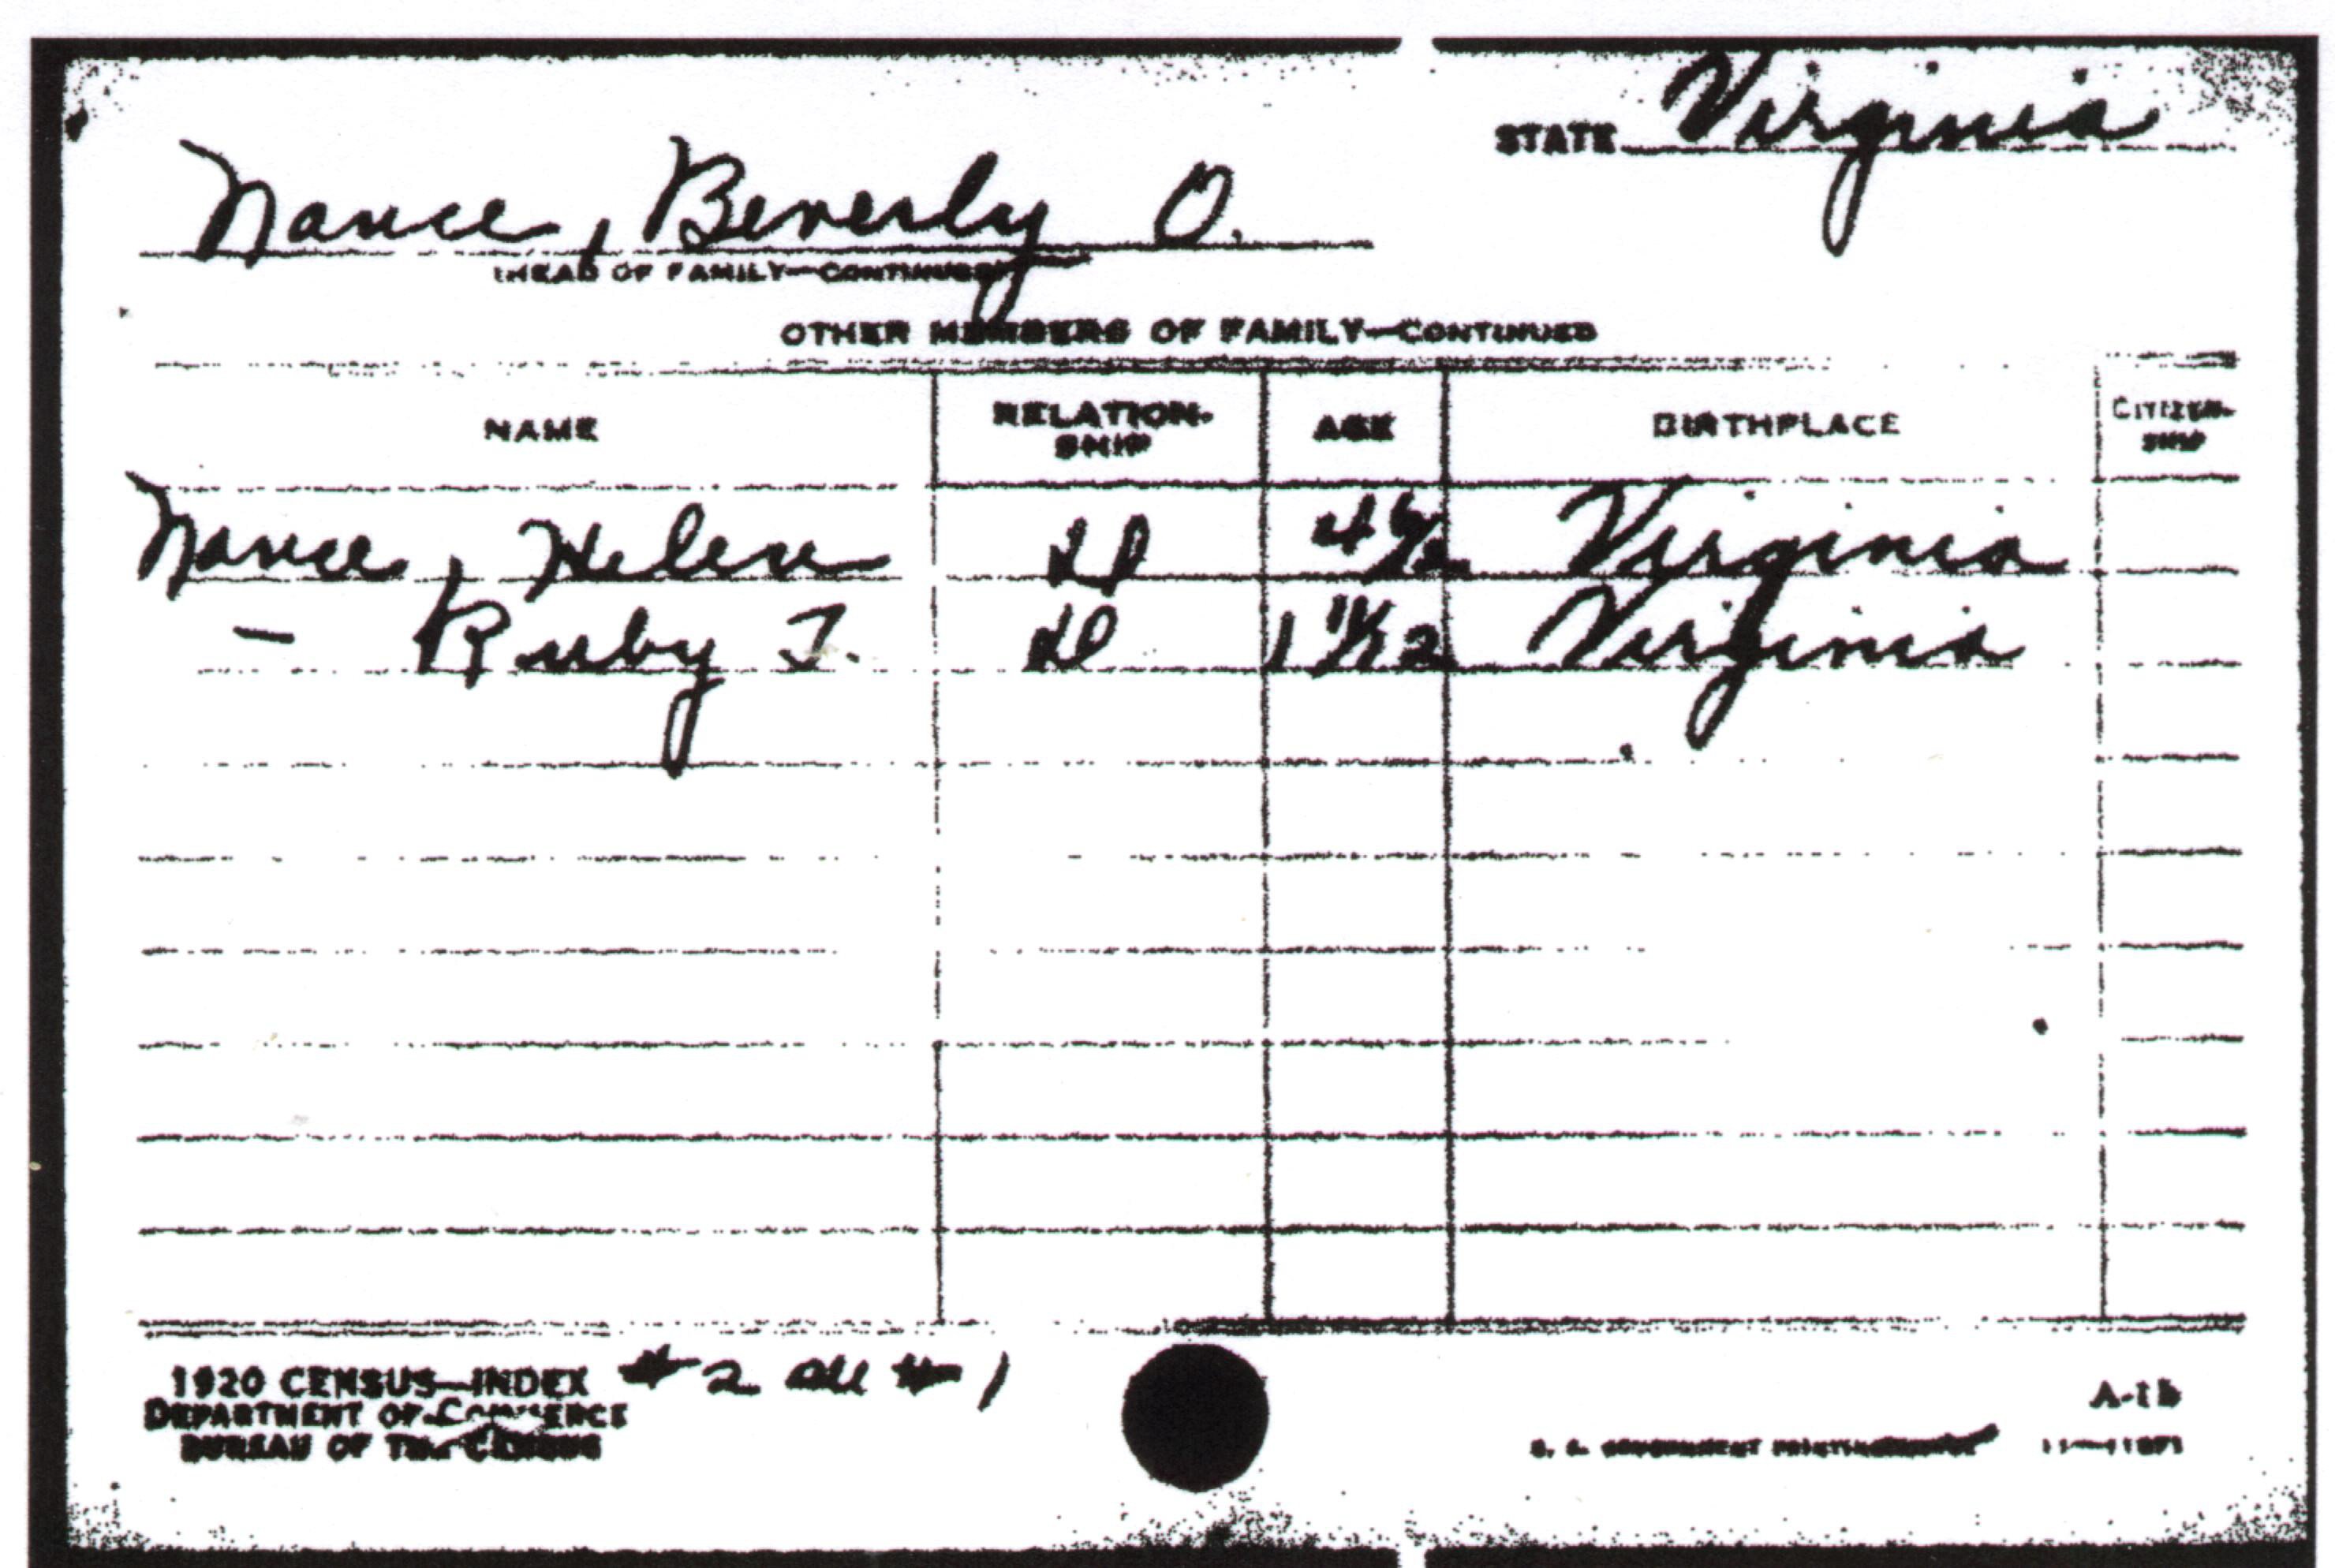 STATE Virginia
Nance, Beverly O.
(HEAD OF FAMILY—CONTINUED)
OTHER MEMBERS OF FAMILY—CONTINUED
NAME RELATION-SHIP AGE BIRTHPLACE CITIZEN-SHIP
Nance, Helen D Virginia
— Ruby J. D 1 11/12 Virginia
1920 CENSUS—INDEX #2 #1
DEPARTMENT OF COMMERCE
BUREAU OF THE CENSUS
A-1b
U. S. GOVERNMENT PRINTING OFFICE